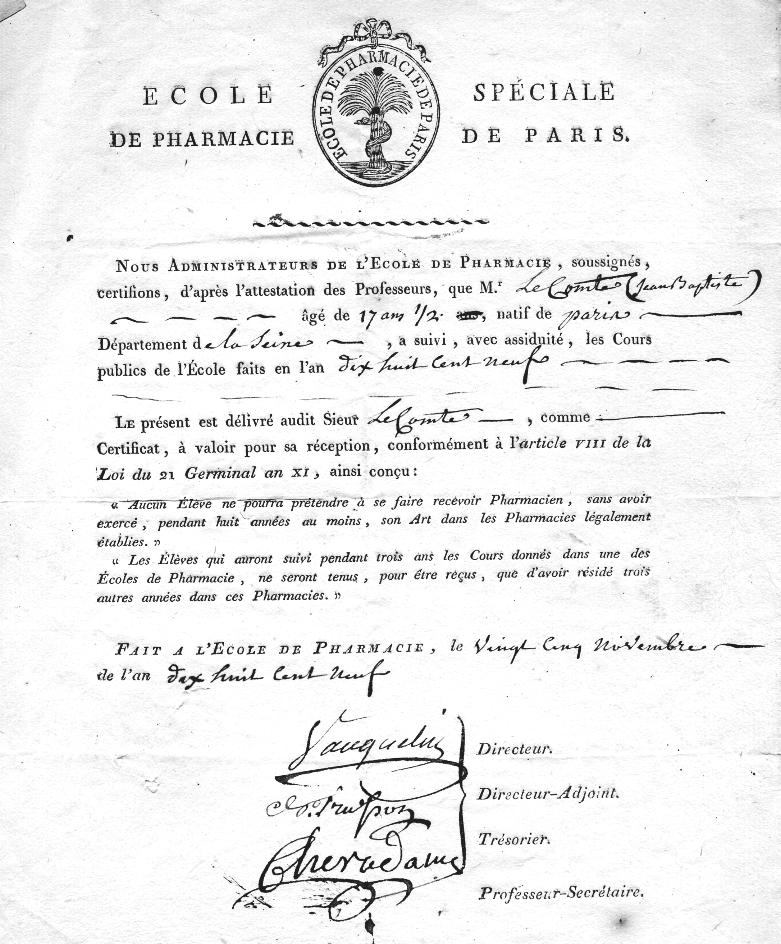 ECOLE SPÉCIALE
DE PHARMACIE DE PARIS.
ECOLE DE PHARMACIE DE PARIS
NOUS ADMINISTRATEURS DE L'ECOLE DE PHARMACIE, soussignés,
certifions, d'après l'attestation des Professeurs, que M.r LeComte (Jean Baptiste)
âgé de 17 ans 1/2 ans, natif de paris
Département de la Seine, a suivi, avec assiduité, les Cours
publics de l'École faits en l'an dix huit Cent neuf
LE présent est délivré audit Sieur LeComte, comme
Certificat, à valoir pour sa réception, conformément à l'article VIII de la
Loi du 21 Germinal an XI, ainsi conçu :
« Aucun Élève ne pourra prétendre à se faire recevoir Pharmacien, sans avoir
exercé, pendant huit années au moins, son Art dans les Pharmacies légalement
établies. »
« Les Élèves qui auront suivi pendant trois ans les Cours donnés dans une des
Écoles de Pharmacie, ne seront tenus, pour être reçus, que d'avoir résidé trois
autres années dans ces Pharmacies. »
FAIT A L'ECOLE DE PHARMACIE, le vingt Cinq Novembre
de l'an dix huit Cent Neuf
Vauquelin Directeur.
Directeur-Adjoint.
Trésorier.
Cheradame
Professeur-Secrétaire.